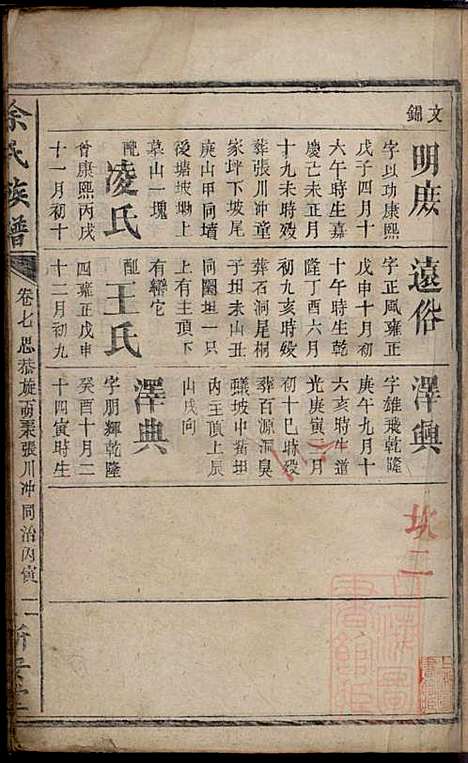 文錦
明庶
字以功康熙
戊子四月十
六午時生嘉
慶己未正月
十九未時殁
葬張川冲童
家坪下坡尾
庚山甲向墳
後塘坡坳上
墓山一塊
配凌氏
曾康熙丙戌
十一月初十
遠俗
字正風雍正
戊申十月初
十午時生乾
隆丁酉六月
初九亥時殁
葬石洞尾桐
子坦未山丑
向關坦一只
右上有王頂下
有巒它
配王氏
四雍正戊申
十二月初九
澤興
字雄飛乾隆
庚午九月十
六亥時生道
光庚寅三月
初十巳時殁
葬百源洞臭
蟻坡中猪坦
内王頂上辰
山戌向
澤典
字朋輝乾隆
癸酉十月二
十四寅時生
坎二
余氏族譜
卷七思恭旋
張川冲同治丙寅
二
新安堂